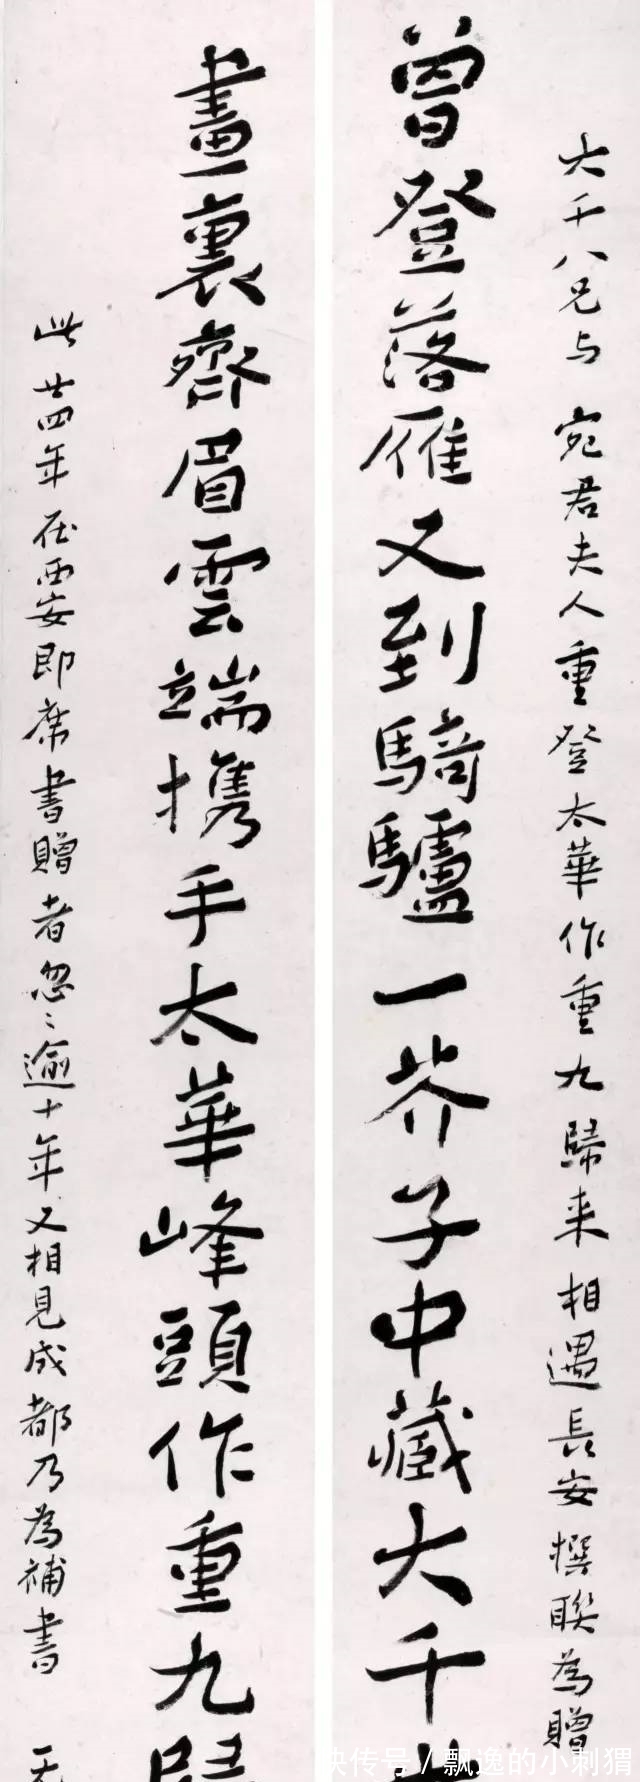 大千八兄与宛君夫人重登太華作重九歸来相遇長安撰聯為贈
曾登落雁又到騎驢一芥子中藏大千
畫裏齊眉雲端携手太華峰頭作重九
此廿四年在西安即席書贈者忽〻逾十年又相見成都乃為補書
快传号/飘逸的小刺猬